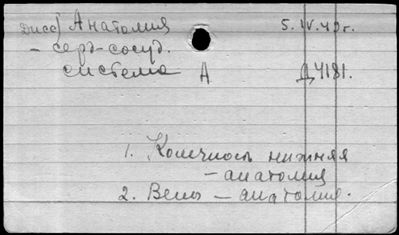 Дисс] Анатомия 5.IV.49г.
- серд-сосуд.
система А Д4181.
1. Конечность нижняя
- анатомия
2. Вены - анатомия.